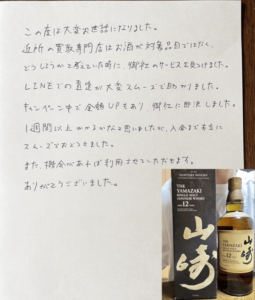 この度は大変お世話になりました。
近所の買取専門店はお酒が対象品目ではなく、
どうしようかと考えていた時に、御社のサービスを見つけました。
LINEでの査定が大変スムーズで助かりました。
キャンペーン中で金額UPもあり、御社に即決しました。
1週間以上かかるかなと思いましたが、入金まで本当に
スムーズでおどろきました。
また、機会があれば利用させていただきます。
ありがとうございました。
THE
YAMAZAKI
SINGLE MALT
JAPANESE WHISKY
AGED 12 YEARS
山崎
山崎
12